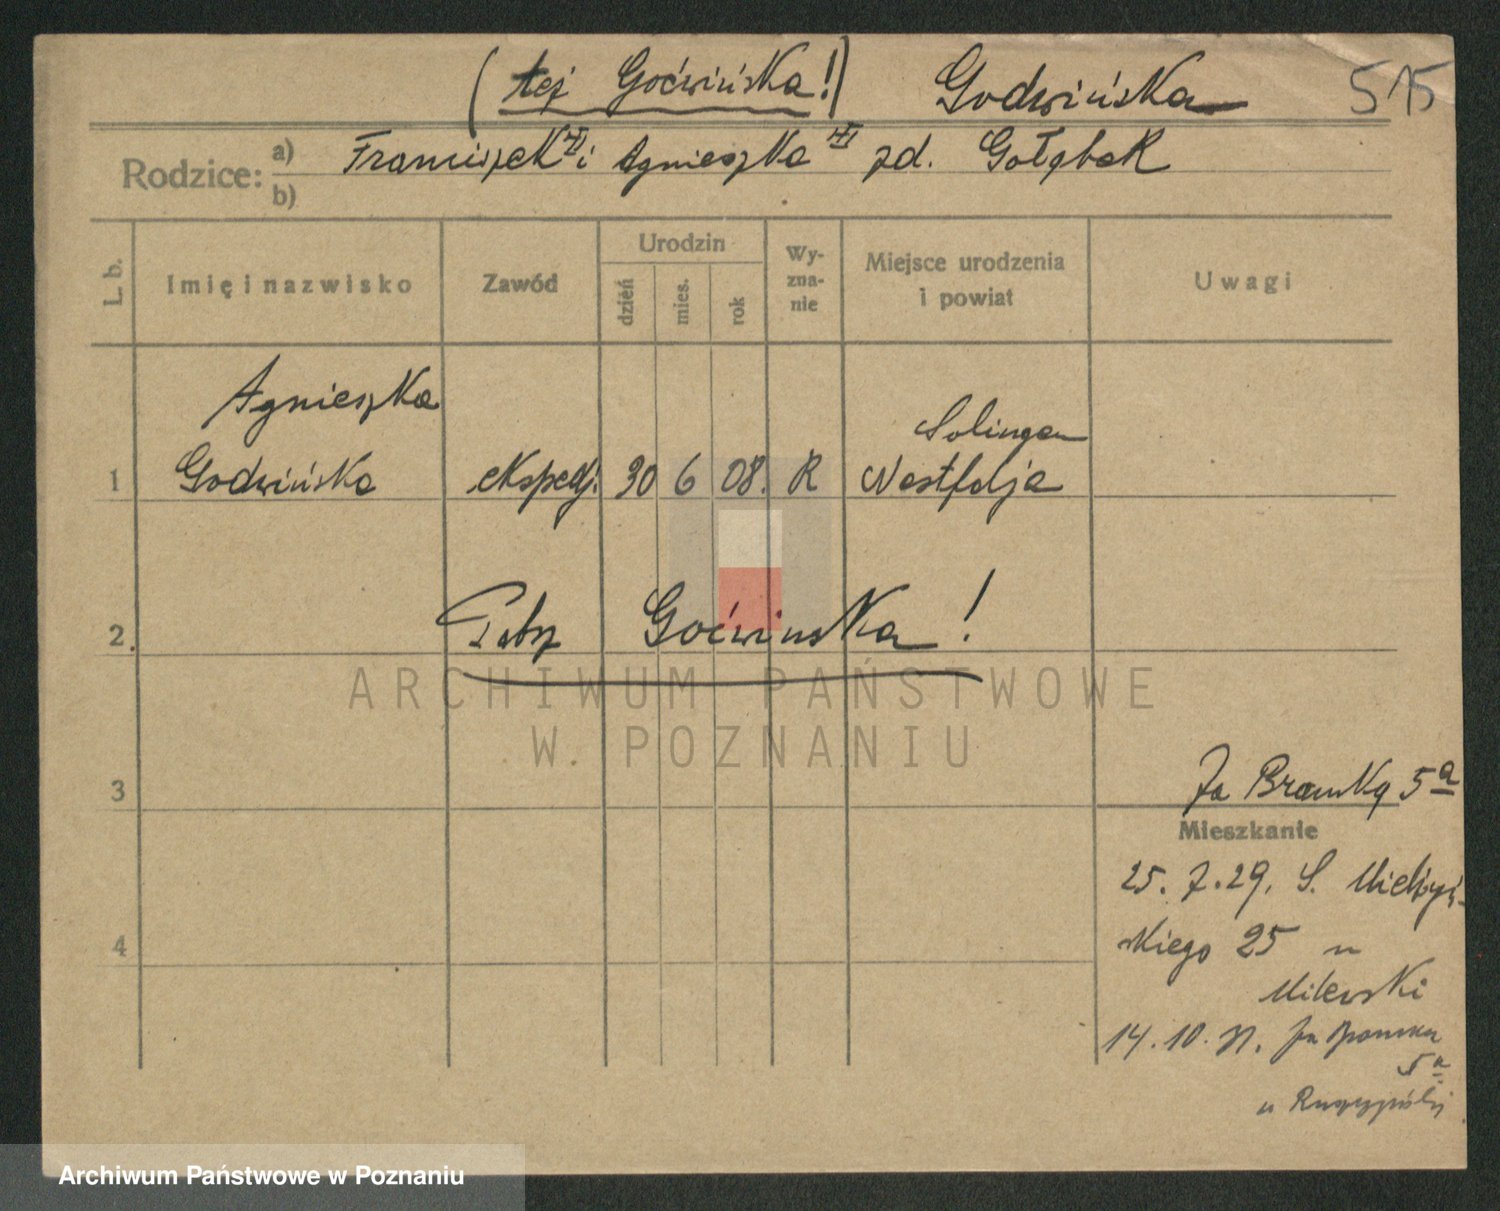 (tej Goćwińska!) Godwińska 515
Rodzice: a) Franciszek i Agnieszka zd. Gołąbek
b)
L. b. Imię i nazwisko Zawód Urodzin dzień mies. rok Wy-zna-nie Miejsce urodzenia i powiat Uwagi
Agnieszka Solingen
1 Godwińska ekspedj. 30 6 08. R Westfalja
2. Goćwinska!
ARCHIWUM PAŃSTWOWE
W POZNANIU
3 Za Bramką 5a
Mieszkanie
25. 7. 29. S. Mielżyń-
4 skiego 25 u
Milewski
14. 10. 31. Za Bramką
5a
u
Archiwum Państwowe w Poznaniu